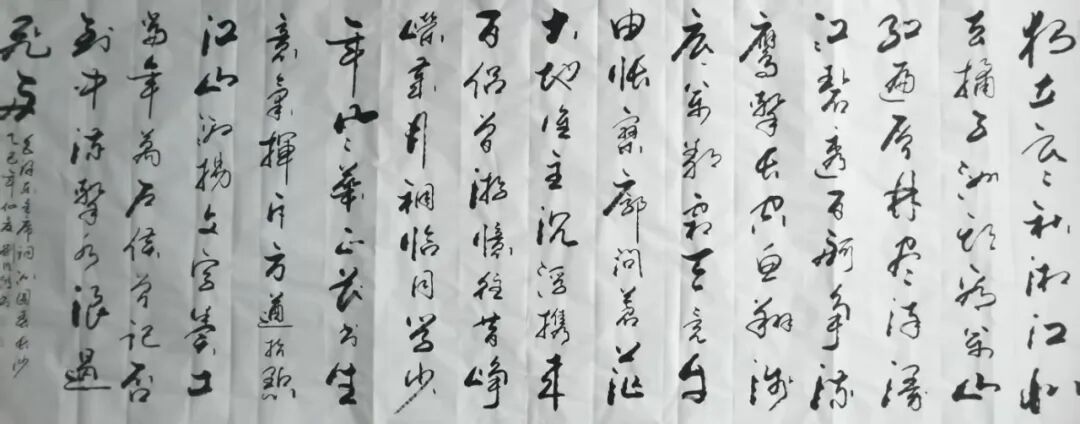 独立寒秋湘江北
去橘子洲头看万山
红遍层林尽染漫
江碧透百舸争流
鹰击长空鱼翔浅
底万类霜天竞自
由怅寥廓问苍茫
大地谁主沉浮携来
百侣曾游忆往昔峥
嵘岁月稠恰同学少
年风华正茂书生
意气挥斥方遒指点
江山激扬文字粪土
当年万户侯曾记否
到中流击水浪遏
飞舟
毛泽东主席词沁园春长沙
乙巳年仲夏